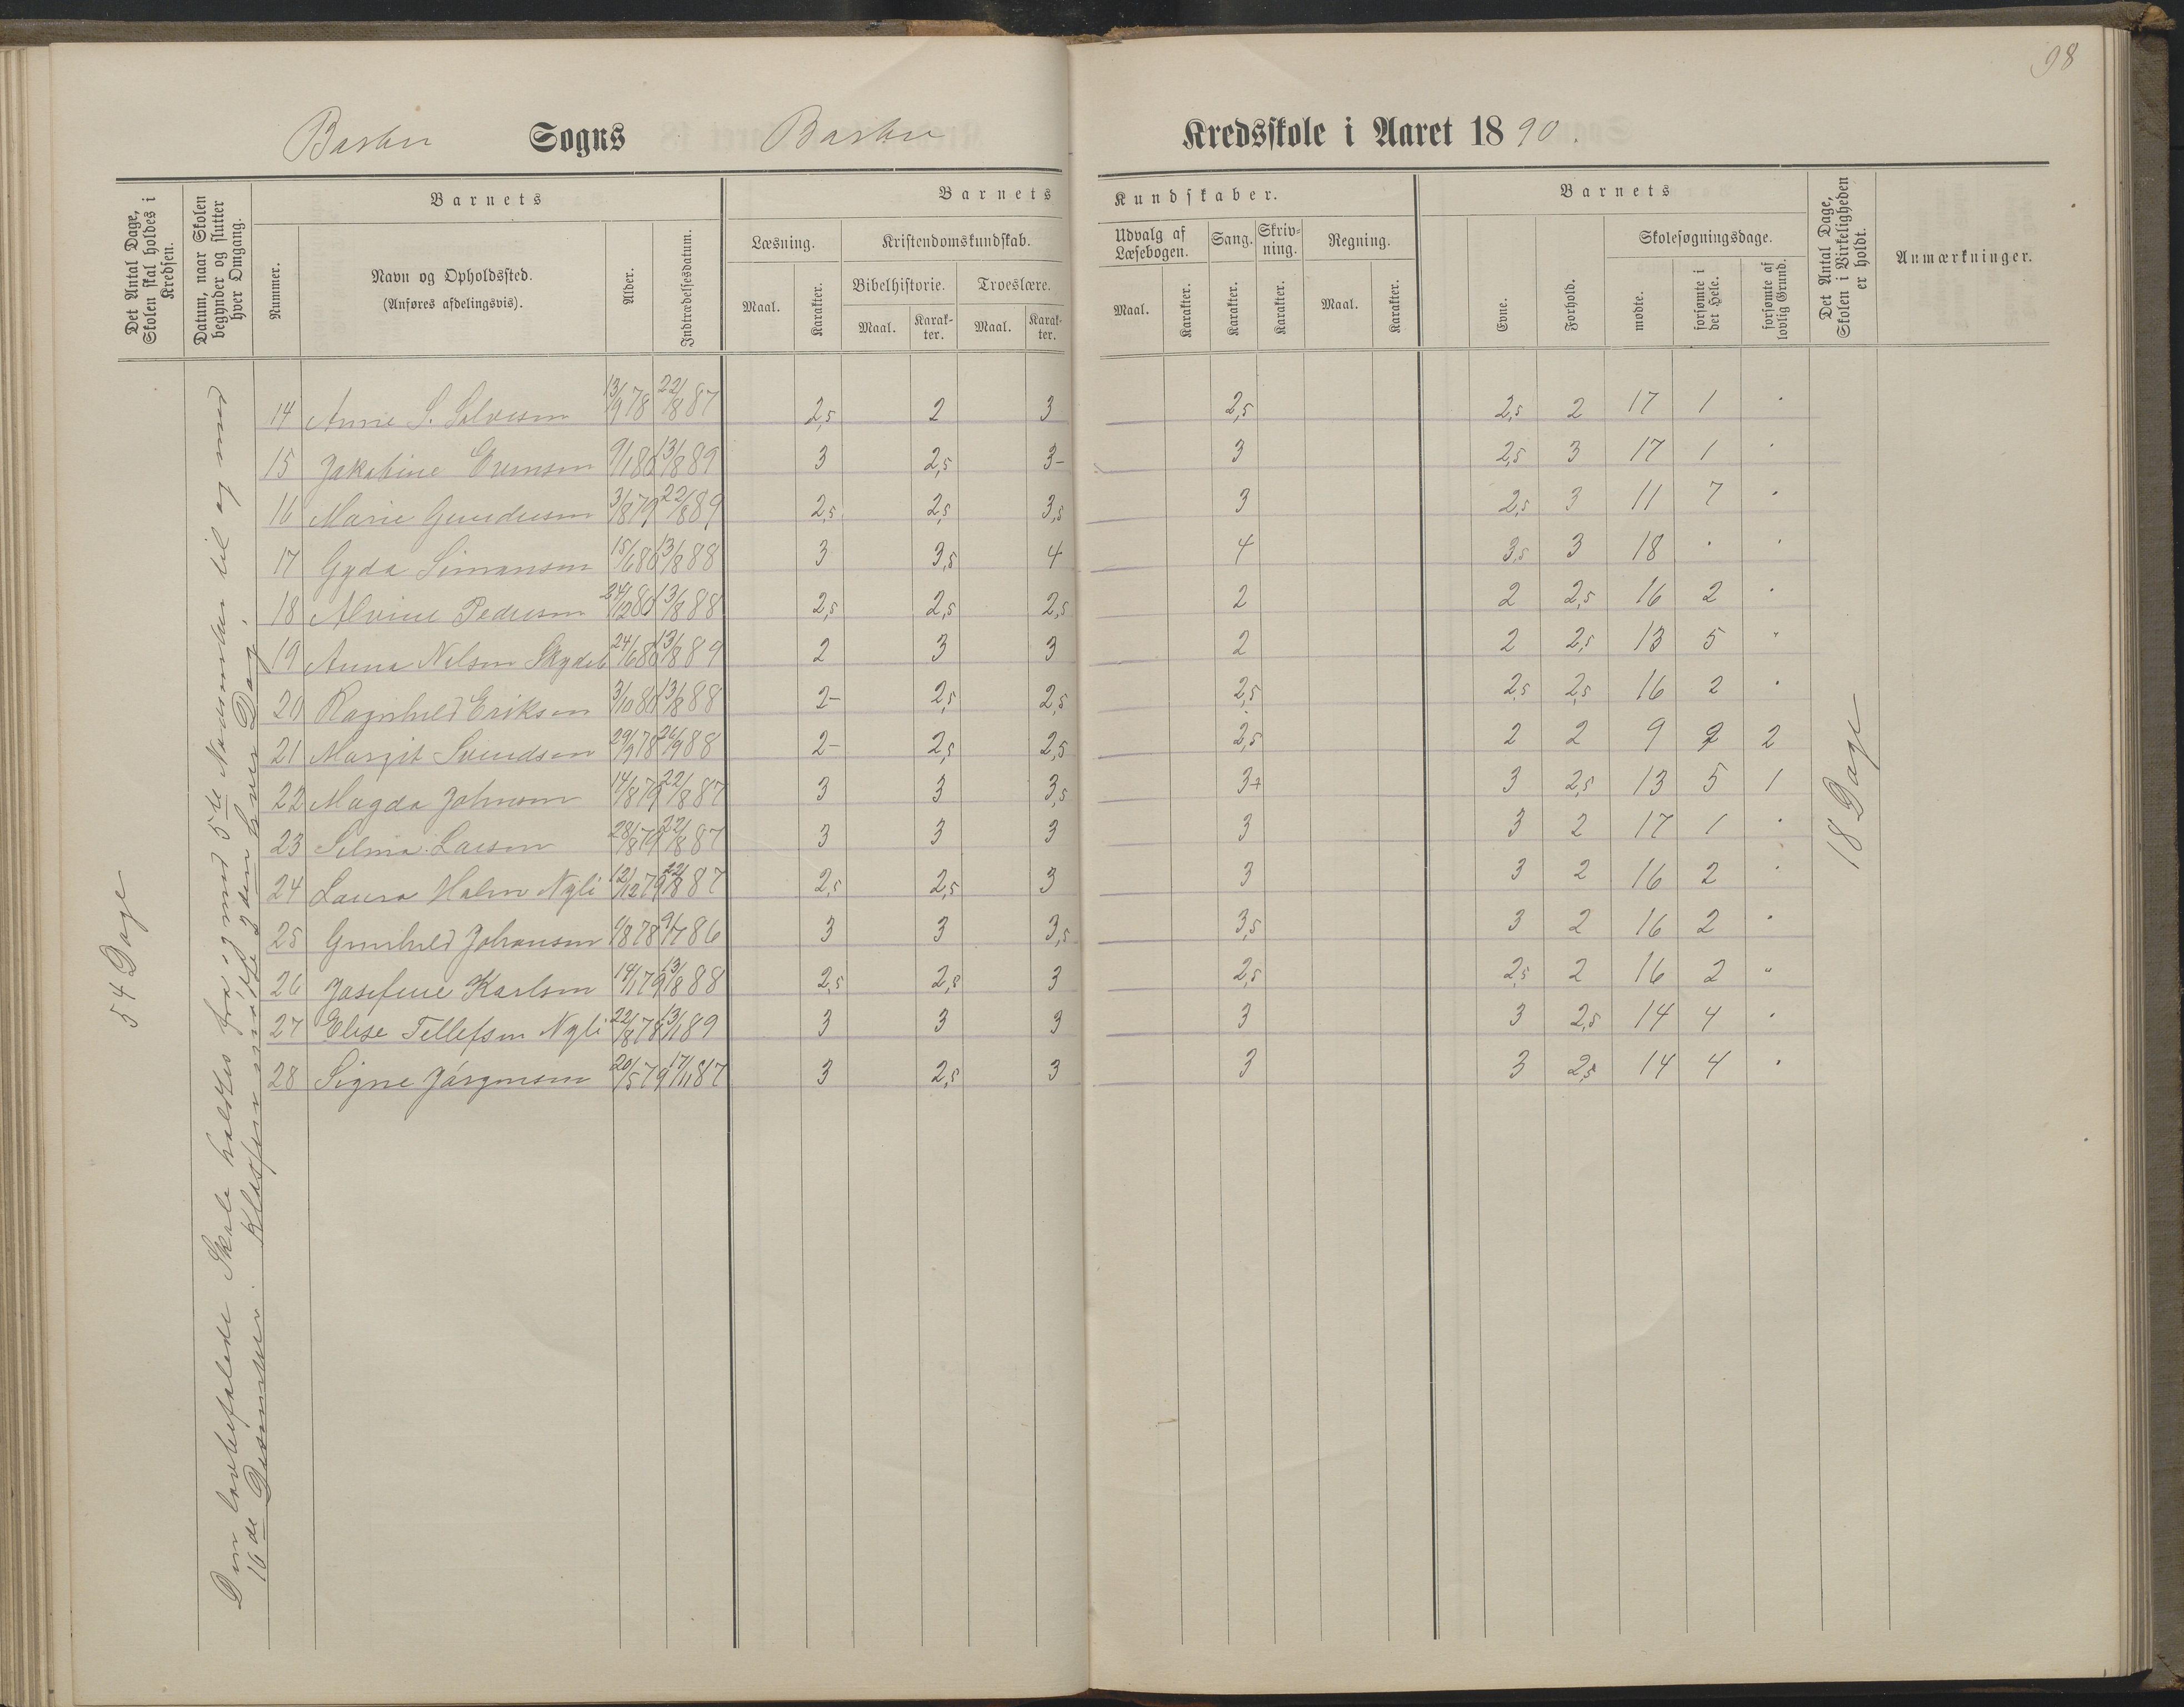 98
Barbu Sogns Barbu Kredsskole i Aaret 1890.
Det Antal Dage, Skolen skal holdes i Kredsen.
Datum, naar Skolen begynder og slutter hver Omgang.
Barnets
Nummer.
Navn og Opholdssted.
(Anføres afdelingsvis).
Alder.
Indtrædelsesdatum.
Barnets Kundskaber.
Læsning.
Maal. Karakter.
Kristendomskundskab.
Bibelhistorie. Troeslære.
Maal. Karakter. Maal. Karakter.
Udvalg af Læsebogen.
Maal. Karakter.
Sang.
Karakter.
Skrivning.
Karakter.
Regning.
Maal. Karakter.
Barnets
Evne.
Forhold.
Skolesøgningsdage.
mødte.
forsømte i det Hele.
forsømte af lovlig Grund.
Det Antal Dage, Skolen i Virkeligheden er holdt.
Anmærkninger.
54 Dage
Den lovbefalede Skole holdtes fra og med 5te November til og med
16de December. Klassen mødte 3 den hver Dag.
14 Anne S. Salvesen 13/9 78 22/8 87 2,5 2 3 2,5 2,5 2 17 1 .
15 Jakobine Evensen 9/1 80 13/8 89 3 2,5 3- 3 2,5 3 17 1 .
16 Marie Gundersen 3/8 79 22/8 89 2,5 2,5 3,5 3 2,5 3 11 7 .
17 Gyda Simonsen 15/6 80 13/8 88 3 3,5 4 4 3,5 3 18 . .
18 Alvine Pedersen 24/12 80 13/8 88 2,5 2,5 2,5 2 2 2,5 16 2 .
19 Anna Nelsen 24/6 80 13/8 89 2 3 3 2 2 2,5 13 5 "
20 Ragnhild Eriksen 3/10 80 13/8 88 2- 2,5 2,5 2,5 2,5 2,5 16 2 .
21 Margit Svendsen 29/9 78 88 2- 2,5 2,5 2,5 2 2 9 9 2
22 Magda Johnsen 14/8 79 22/8 87 3 3 3,5 3+ 3 2,5 13 5 1
23 Selma Larsen 28/8 79 22/8 87 3 3 3 3 3 2 17 1 .
24 Laura Holm Nyli 12/12 79 22/8 87 2,5 2,5 3 3 3 2 16 2 .
25 Gunhild Johansen 78 9/7 86 3 3 3,5 3,5 3 2 16 2 .
26 Josefine Karlsen 14/1 79 13/8 88 2,5 2,5 3 2,5 2,5 2 16 2 "
27 Elise Tellefsen Nyli 22/8 78 13/1 89 3 3 3 3 3 2,5 14 4 .
28 Signe Jørgensen 20/5 79 17/11 87 3 2,5 3 3 3 2,5 14 4 .
18 Dage